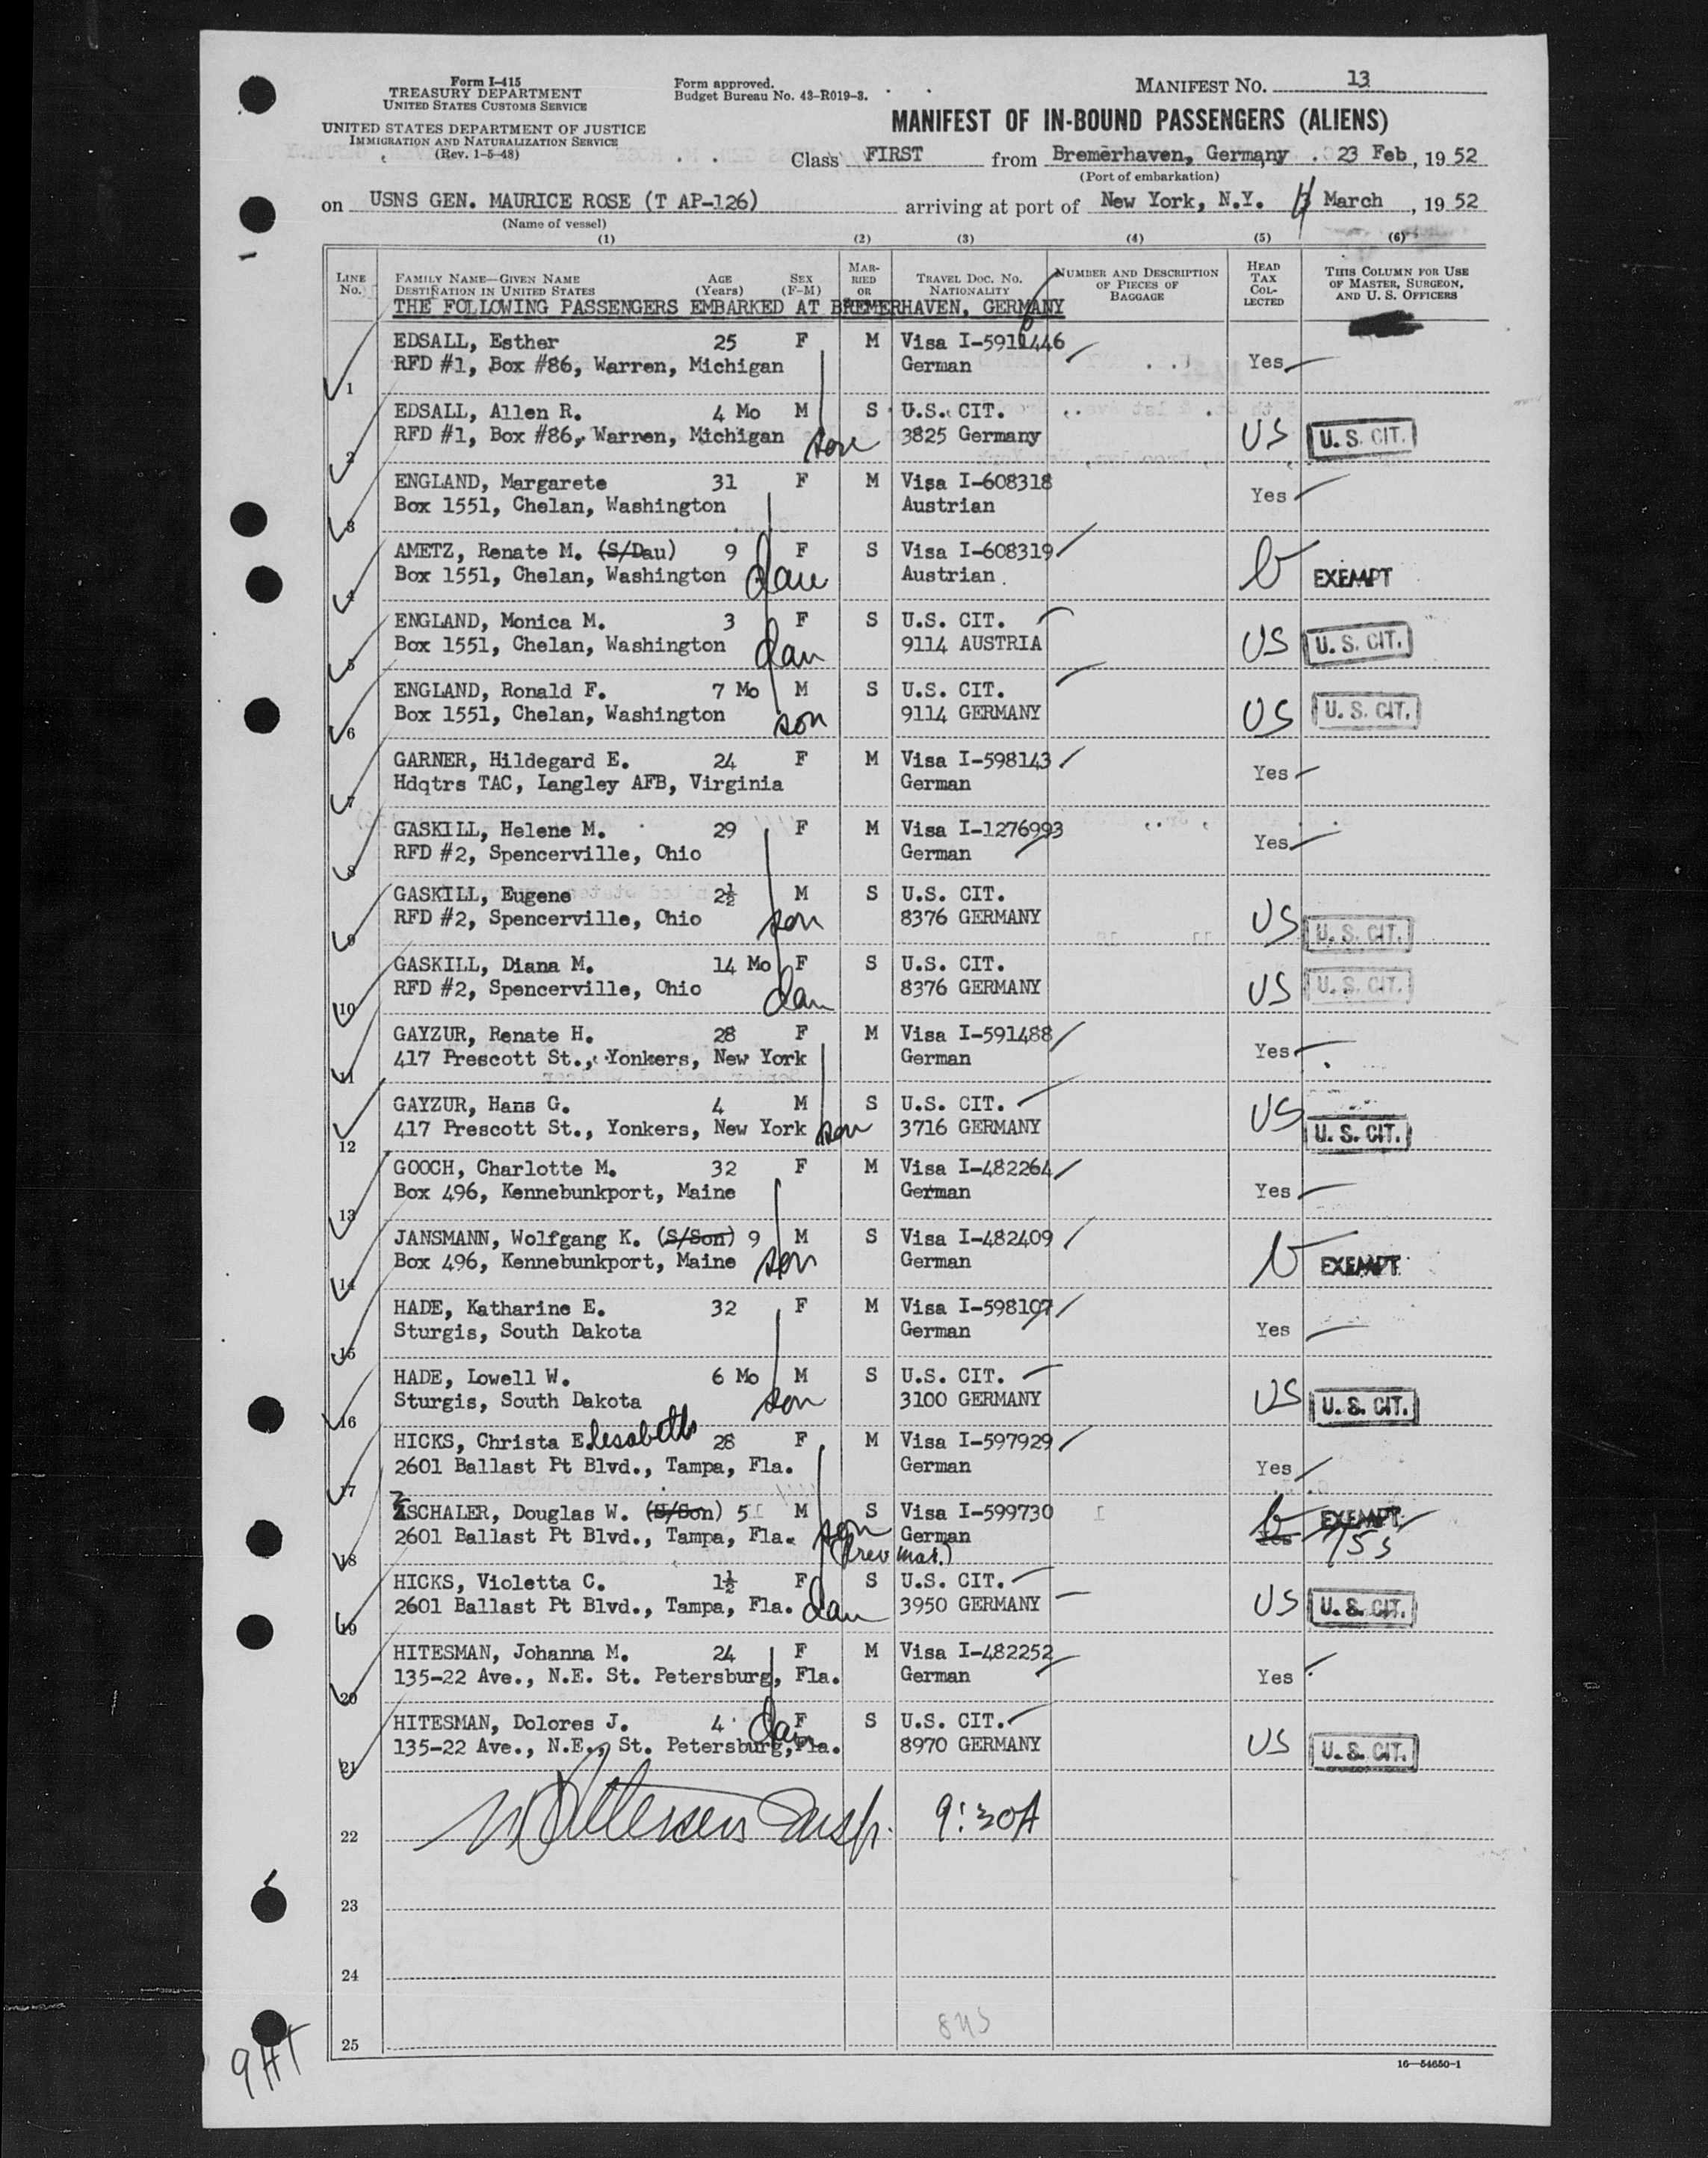 Form I-415
TREASURY DEPARTMENT
UNITED STATES CUSTOMS SERVICE
Form approved.
Budget Bureau No. 43-R019-3.
MANIFEST NO. 13
UNITED STATES DEPARTMENT OF JUSTICE
IMMIGRATION AND NATURALIZATION SERVICE
(Rev. 1-5-48)
MANIFEST OF IN-BOUND PASSENGERS (ALIENS)
Class FIRST from Bremerhaven, Germany 23 Feb, 1952
(Port of embarkation)
on USNS GEN. MAURICE ROSE (T AP-126) arriving at port of New York, N.Y. March, 1952
(Name of vessel)
(1) (2) (3) (4) (5) (6)
LINE No. FAMILY NAME—GIVEN NAME DESTINATION IN UNITED STATES AGE (Years) SEX (F-M) MARRIED OR TRAVEL DOC. No. NATIONALITY NUMBER AND DESCRIPTION OF PIECES OF BAGGAGE HEAD TAX COLLECTED THIS COLUMN FOR USE OF MASTER, SURGEON, AND U. S. OFFICERS
THE FOLLOWING PASSENGERS EMBARKED AT BREMERHAVEN, GERMANY
EDSALL, Esther 25 F M Visa I-5911446
1 RFD #1, Box #86, Warren, Michigan German Yes
EDSALL, Allen R. 4 Mo M S U.S. CIT.
2 RFD #1, Box #86, Warren, Michigan son 3825 Germany US U. S. CIT.
ENGLAND, Margarete 31 F M Visa I-608318
3 Box 1551, Chelan, Washington Austrian Yes
AMETZ, Renate M. (S/Dau) 9 F S Visa I-608319
4 Box 1551, Chelan, Washington dau Austrian EXEMPT
ENGLAND, Monica M. 3 F S U.S. CIT.
5 Box 1551, Chelan, Washington dau 9114 AUSTRIA US U. S. CIT.
ENGLAND, Ronald F. 7 Mo M S U.S. CIT.
6 Box 1551, Chelan, Washington son 9114 GERMANY US U. S. CIT.
GARNER, Hildegard E. 24 F M Visa I-598143
7 Hdqtrs TAC, Langley AFB, Virginia German Yes
GASKILL, Helene M. 29 F M Visa I-1276993
8 RFD #2, Spencerville, Ohio German Yes
GASKILL, Eugene 2½ M S U.S. CIT.
9 RFD #2, Spencerville, Ohio son 8376 GERMANY US U. S. CIT.
GASKILL, Diana M. 14 Mo F S U.S. CIT.
10 RFD #2, Spencerville, Ohio dau 8376 GERMANY US U. S. CIT.
GAYZUR, Renate H. 28 F M Visa I-591488
11 417 Prescott St., Yonkers, New York German Yes
GAYZUR, Hans G. 4 M S U.S. CIT.
12 417 Prescott St., Yonkers, New York son 3716 GERMANY US U. S. CIT.
GOOCH, Charlotte M. 32 F M Visa I-482264
13 Box 496, Kennebunkport, Maine German Yes
JANSMANN, Wolfgang K. (S/Son) 9 M S Visa I-482409
14 Box 496, Kennebunkport, Maine son German EXEMPT
HADE, Katharine E. 32 F M Visa I-598107
15 Sturgis, South Dakota German Yes
HADE, Lowell W. 6 Mo M S U.S. CIT.
16 Sturgis, South Dakota son 3100 GERMANY US U. S. CIT.
HICKS, Christa Elesabeth 28 F M Visa I-597929
17 2601 Ballast Pt Blvd., Tampa, Fla. German Yes
ZSCHALER, Douglas W. (S/Son) 5 M S Visa I-599730 EXEMPT
18 2601 Ballast Pt Blvd., Tampa, Fla. son German Yes
(Prev mar.)
HICKS, Violetta C. 1½ F S U.S. CIT.
19 2601 Ballast Pt Blvd., Tampa, Fla. dau 3950 GERMANY US U. S. CIT.
HITESMAN, Johanna M. 24 F M Visa I-482252
20 135-22 Ave., N.E. St. Petersburg, Fla. German Yes
HITESMAN, Dolores J. 4 F S U.S. CIT.
21 135-22 Ave., N.E., St. Petersburg, Fla. dau 8970 GERMANY US U. S. CIT.
22 Insp. 9:30A
23
24
25
16—54650-1